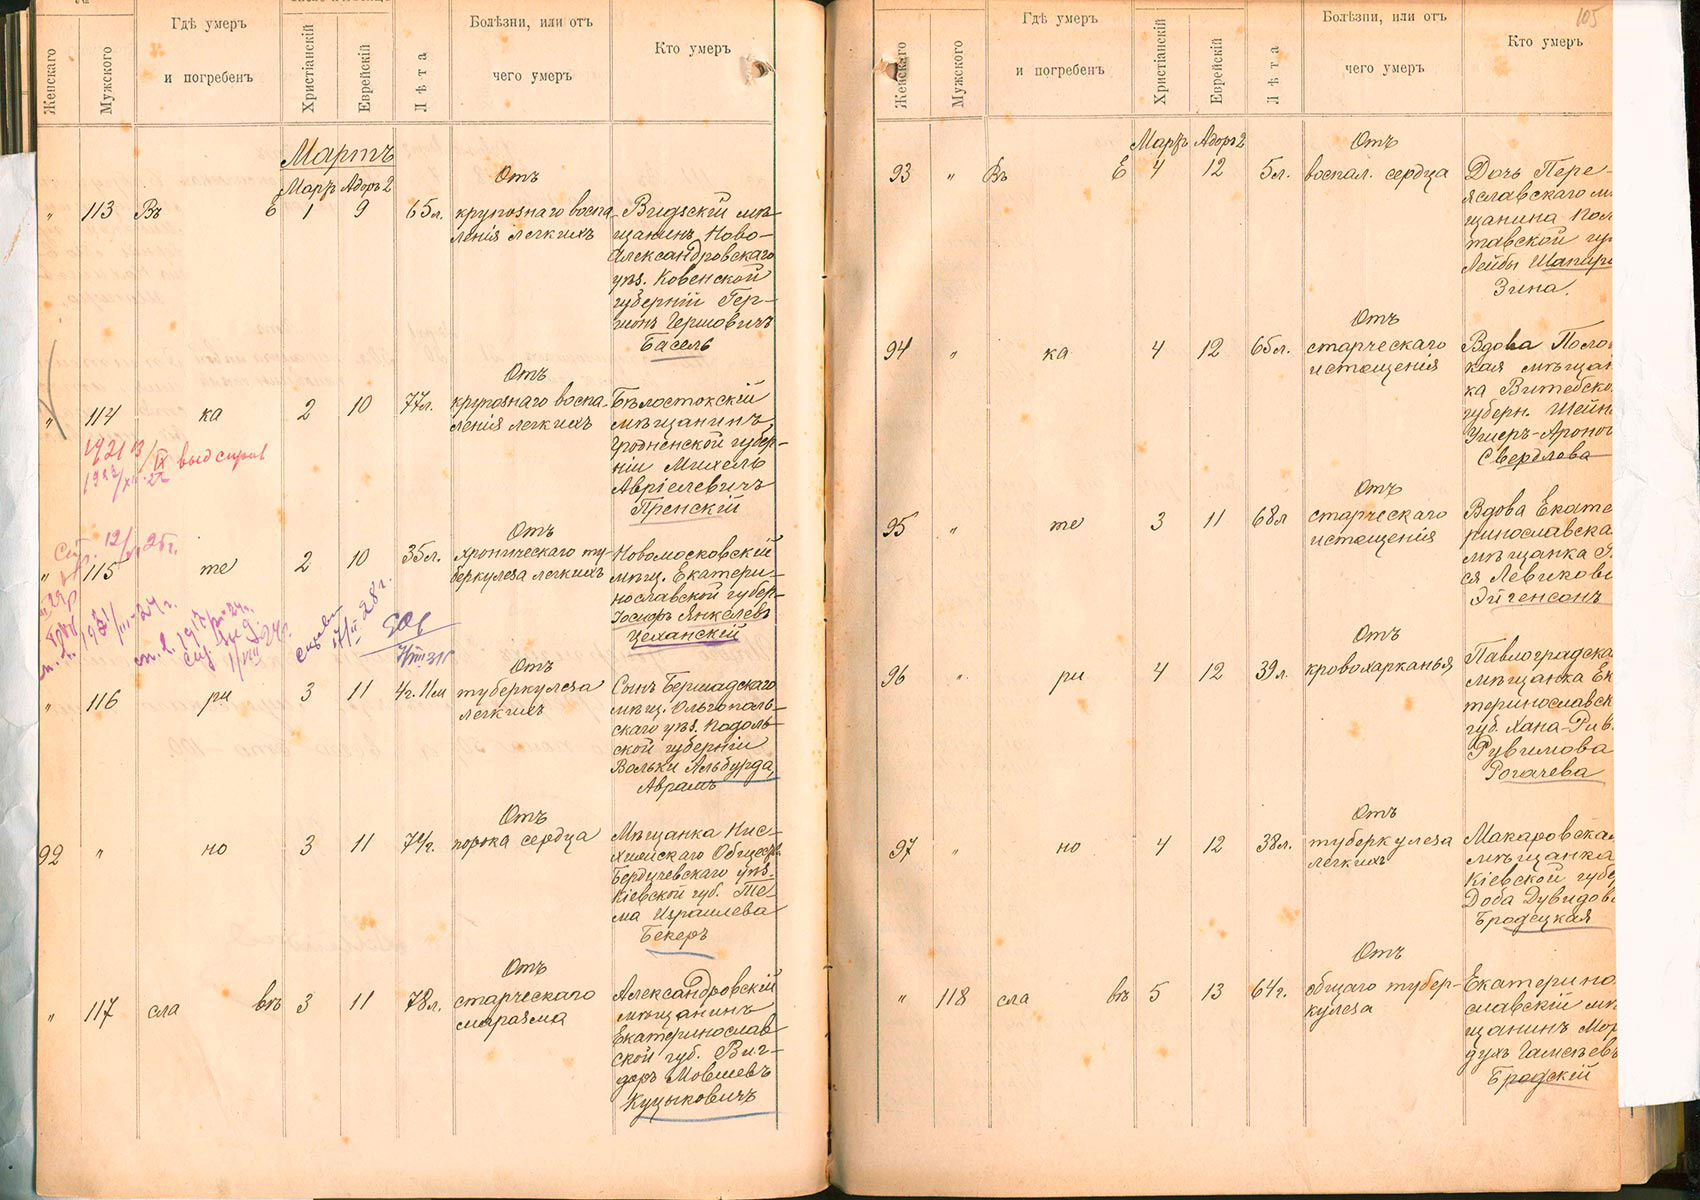 Женскаго
Мужского
Гдѣ умеръ
и погребенъ
Христіанскій
Еврейскій
Лѣта
Болѣзни, или отъ
чего умеръ
Кто умеръ
Мартъ
Мар. Адоръ 2
„ 113 Въ Е 1 9 65л.
Отъ
крупознаго воспа-
ленія легкихъ
Видзскій мѣ-
щанинъ Ново-
Александровскаго
уѣз. Ковенской
губерніи Гер-
шонъ Гершовичъ
Басель
„ 114 ка 2 10 77л.
Отъ
крупознаго воспа-
ленія легкихъ
Бѣлостокскій
мѣщанинъ
Гродненской губер-
ніи Михель
Авріелевичъ
Пренскій
„ 115 те 2 10 35л.
Отъ
хроническаго ту-
беркулеза легкихъ
Новомосковскій
мѣщ. Екатери-
нославской губер-
Іосифъ Янкелевъ
Цеханскій
„ 116 ри 3 11 4г. 11м
Отъ
туберкулеза
легкихъ
Сынъ Бершадскаго
мѣщ. Ольгополь-
скаго уѣз. Подоль-
ской губерніи
Вольки Альбурда,
Аврамъ
92 „ но 3 11 74г.
Отъ
порока сердца
Мѣщанка
Бердичевскаго уѣз.
Кіевской губ. Те-
ма Израилева
Бекеръ
„ 117 сла вѣ 3 11 78л.
Отъ
старческаго
маразма
Александровскій
мѣщанинъ
Екатеринослав-
ской губ. Виг-
доръ Мовшевъ
Куцыковичъ
105
Женскаго
Мужского
Гдѣ умеръ
и погребенъ
Христіанскій
Еврейскій
Лѣта
Болѣзни, или отъ
чего умеръ
Кто умеръ
Мар. Адоръ 2
93 „ Въ Е 4 12 5л.
Отъ
воспал. сердца
Дочь Пере-
яславскаго мѣ
щанина Пол
тавской гу
Лейбы Шапиро
Зина.
94 „ ка 4 12 65л.
Отъ
старческаго
истощенія
Вдова Поло
кая мѣщан
ка Витебско
губерн. Шейн
Ушеръ-Аронов
Свердлова
95 „ те 3 11 68л
Отъ
старческаго
истощенія
Вдова Екате
ринославска
мѣщанка
ся Левикова
Эйгенсонъ
96 „ ри 4 12 39л.
Отъ
кровохарканья
Павлоградска
мѣщанка Ек
теринославск
губ. Хана-Рив
Рувимова
Рогачева
97 „ но 4 12 38л.
Отъ
туберкулеза
легкихъ
Макаровская
мѣщанка
Кіевской губер
Доба Дувидов
Бродецкая
„ 118 сла вѣ 5 13 64г.
Отъ
общаго тубер-
кулеза
Екатерино
славскій мѣ
щанинъ Мор
духъ
Бродскій